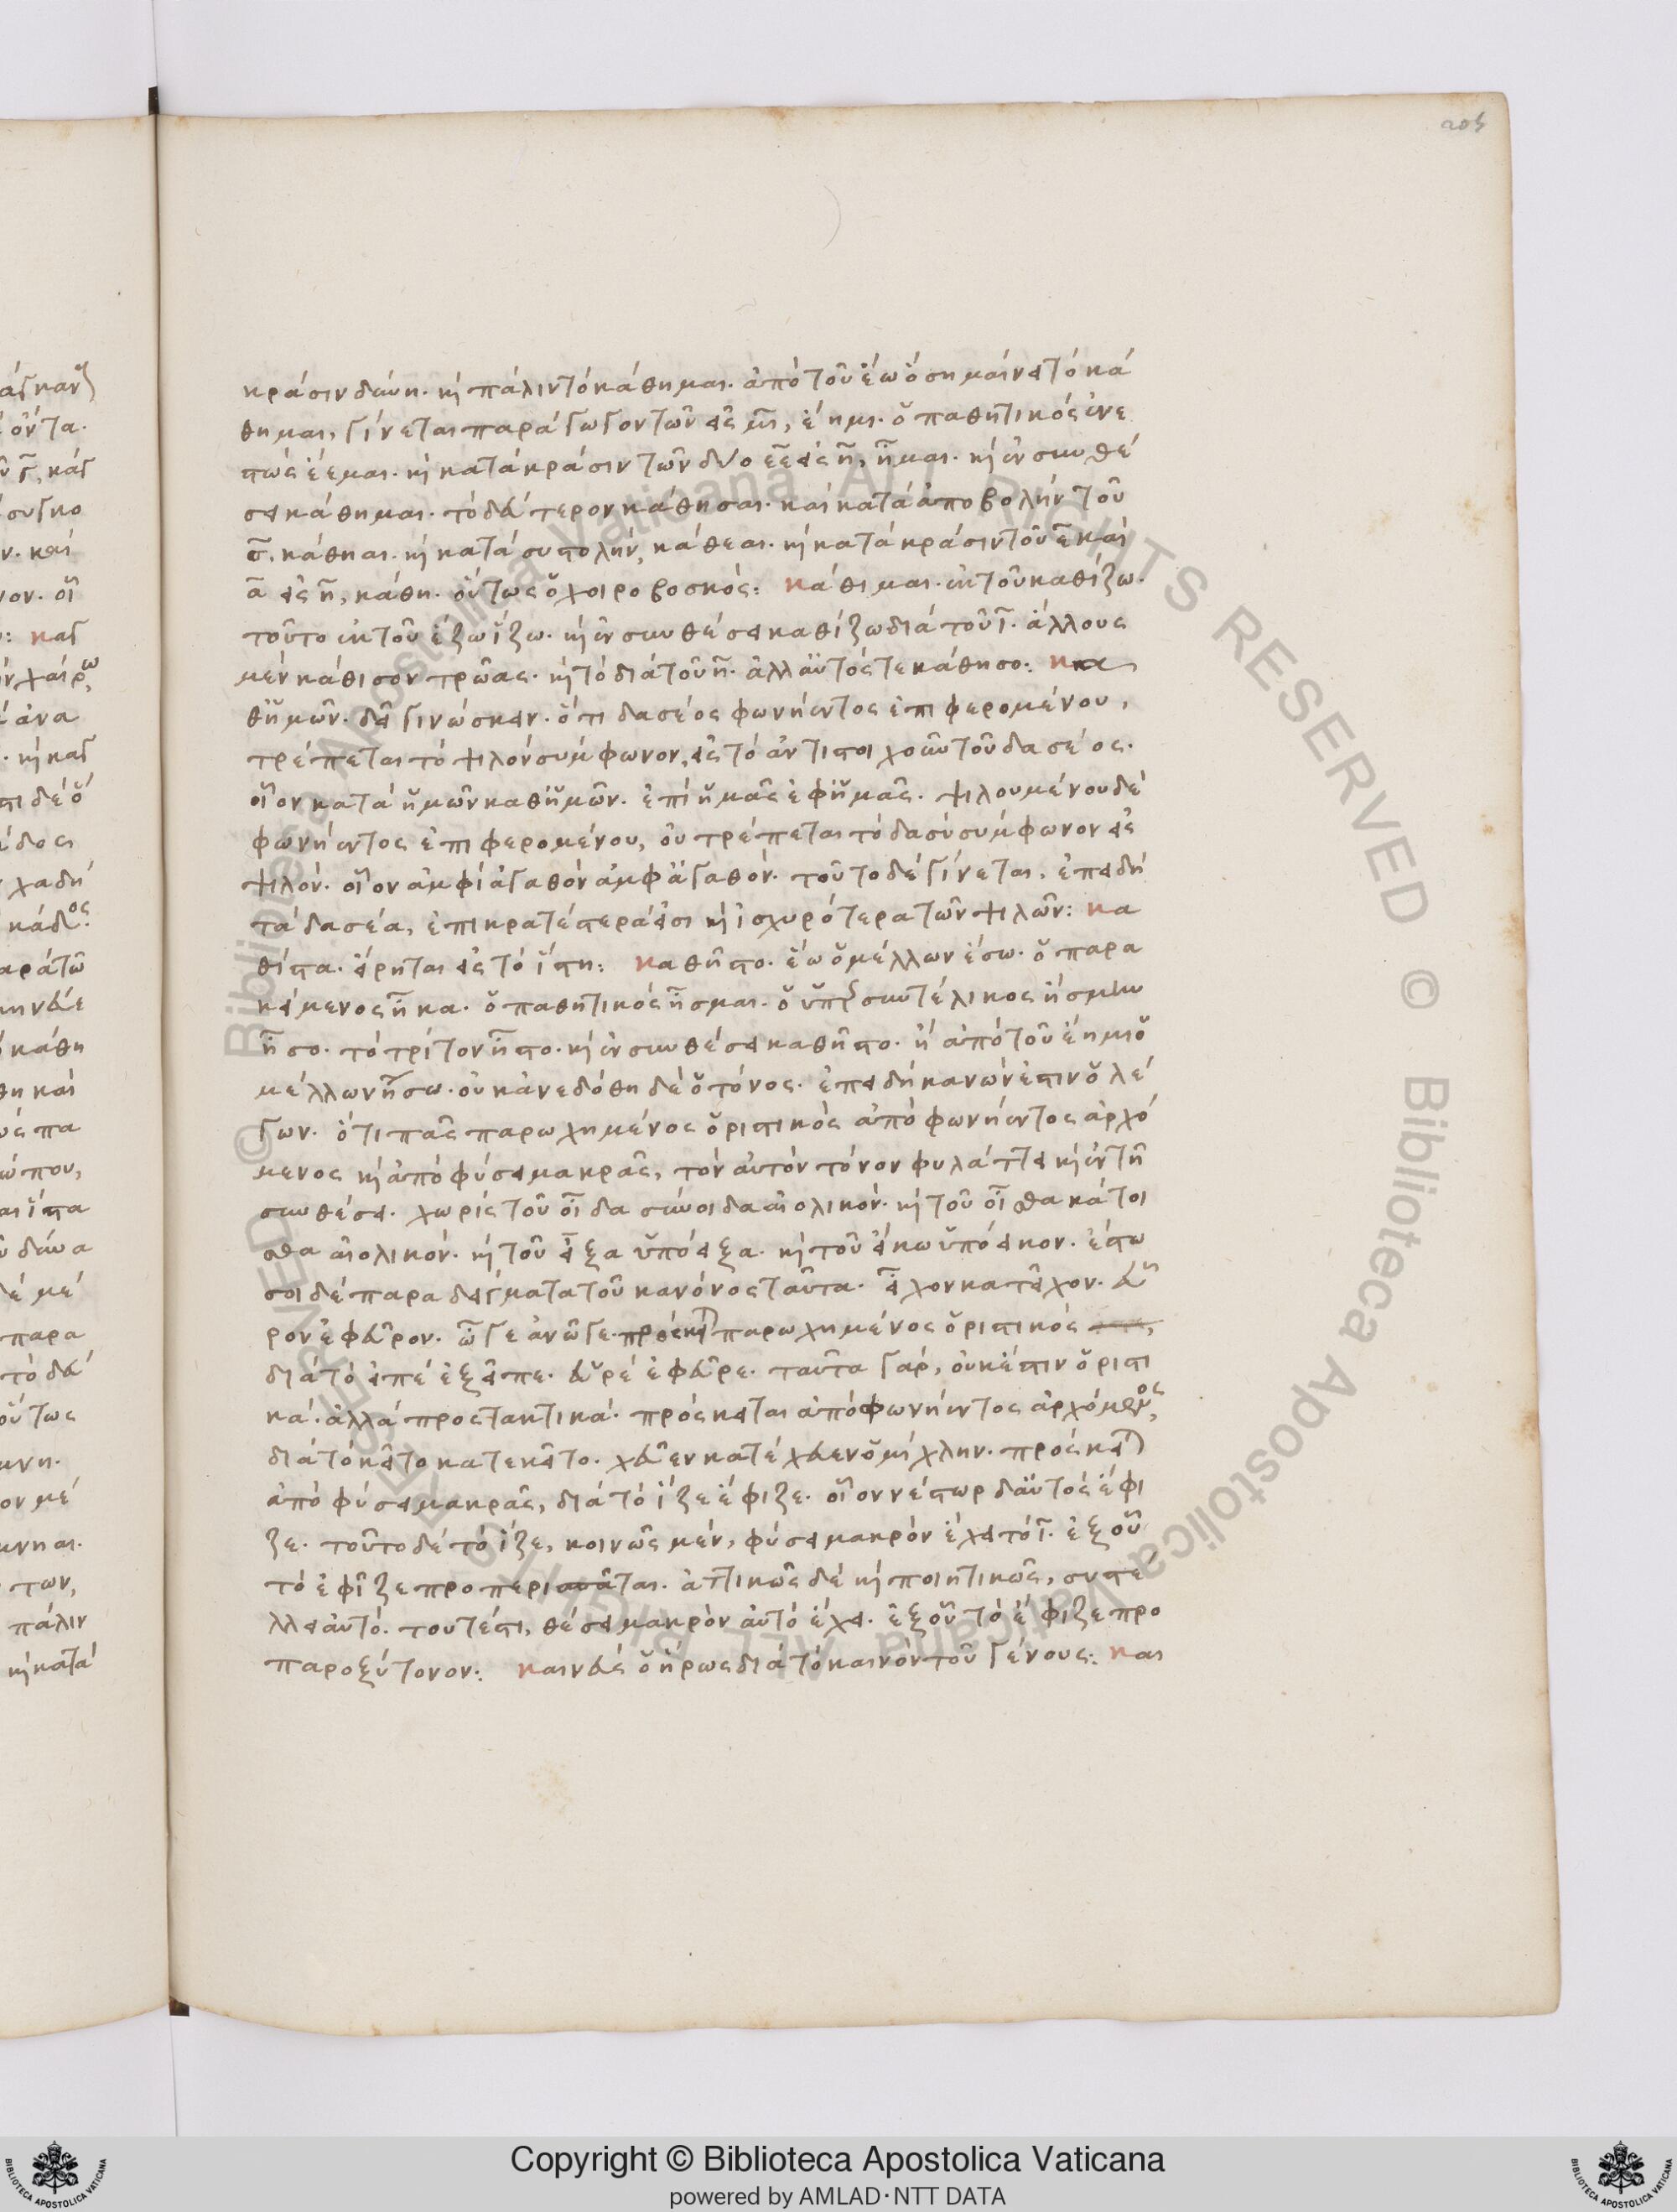 205
κράσιν δαίνη. καὶ πάλιν τὸ κάθημαι. ἀπὸ τοῦ ἕω ὃ σημαίνει τὸ κά
θημαι, γίνεται παράγωγον τῶν εἰς μι, ἕημι. ὁ παθητικὸς ἐνε
στὼς ἕεμαι. καὶ κατὰ κράσιν τῶν δύο εε εἰς η, ἧμαι. καὶ ἐν συνθέ
σει κάθημαι. τὸ δεύτερον κάθησαι. καὶ κατὰ ἀποβολὴν τοῦ
σ, κάθηαι. καὶ κατὰ συστολὴν, κάθεαι. καὶ κατὰ κράσιν τοῦ ε καὶ
α εἰς η, κάθη. οὕτως ὁ χοιροβοσκός: κάθιμαι. ἐκ τοῦ καθίζω.
τοῦτο ἐκ τοῦ ἕζω ἵζω. καὶ ἐν συνθέσει καθίζω διὰ τοῦ ι. ἄλλους
μὲν κάθισον τρῶας. καὶ τὸ διὰ τοῦ η. ἀλλ' αὐτός τε κάθησο: κα
θ' ἡμῶν. δεῖ γινώσκειν. ὅτι δασέος φωνήεντος ἐπιφερομένου,
τρέπεται τὸ ψιλὸν σύμφωνον, εἰς τὸ ἀντιστοιχοῦν τοῦ δασέος.
οἷον κατὰ ἡμῶν καθ' ἡμῶν. ἐπὶ ἡμᾶς ἐφ' ἡμᾶς. ψιλουμένου δὲ
φωνήεντος ἐπιφερομένου, οὐ τρέπεται τὸ δασὺ σύμφωνον εἰς
ψιλόν. οἷον ἀμφὶ ἀγαθὸν ἀμφ' ἀγαθόν. τοῦτο δὲ γίνεται, ἐπειδὴ
τὰ δασέα, ἐπικρατέστερά εἰσι καὶ ἰσχυρότερα τῶν ψιλῶν: κα
θίστα. εἴρηται εἰς τὸ ἵστη: καθῆστο. ἕω ὁ μέλλων ἕσω. ὁ παρα
κείμενος ἧκα. ὁ παθητικὸς ἧσμαι. ὁ ὑπερσυντέλικος ἥσμην
ἧσο. τὸ τρίτον ἧστο. καὶ ἐν συνθέσει καθῆστο. ἢ ἀπὸ τοῦ ἕημι ὁ
μέλλων ἥσω. οὐκ ἀνεδόθη δὲ ὁ τόνος. ἐπειδὴ κανών ἐστιν ὁ λέ
γων. ὅτι πᾶς παρωχημένος ὁριστικὸς ἀπὸ φωνήεντος ἀρχό
μενος καὶ ἀπὸ φύσει μακρᾶς, τὸν αὐτὸν τόνον φυλάττει καὶ ἐν τῇ
συνθέσει. χωρὶς τοῦ οἶδα σύνοιδα αἰολικόν. καὶ τοῦ οἶσθα κάτοι
σθα αἰολικόν. καὶ τοῦ εἶξα ὕπόειξα. καὶ τοῦ εἴκω ὑπόεικον. ἔστω
σοι δὲ παραδείγματα τοῦ κανόνος ταῦτα. εἶχον κατεῖχον. εὗ
ρον ἐφεῦρον. ᾦγε ἀνῷγε. πρόσκειται παρωχημένος ὁριστικὸς
διὰ τὸ εἰπὲ ἔξειπε. εὑρὲ ἔφευρε. ταῦτα γὰρ, οὐκ ἔστιν ὁριστι
κά. ἀλλὰ προστακτικά. πρόσκειται ἀπὸ φωνήεντος ἀρχόμενος,
διὰ τὸ κεῖτο κατέκειτο. χεῦεν κατέχευεν ὀμίχλην. πρόσκειται
ἀπὸ φύσει μακρᾶς, διὰ τὸ ἵζε ἔφιζε. οἷον νέστωρ δ' αὐτὸς ἔφι
ζε. τοῦτο δὲ τὸ ἵζε, κοινῶς μὲν, φύσει μακρὸν ἔχει τὸ ι. ἐξ οὗ
τὸ ἐφῖζε προπερισπᾶται. ἀττικῶς δὲ καὶ ποιητικῶς, συστέ
λλει αὐτό. τουτέστι, θέσει μακρὸν αὐτὸ ἔχει. ἐξ οὗ τὸ ἔφιζε προ
παροξύτονον: καινεὺς ὁ ἥρως διὰ τὸ καινὸν τοῦ γένους: και
Copyright © Biblioteca Apostolica Vaticana
powered by AMLAD·NTT DATA